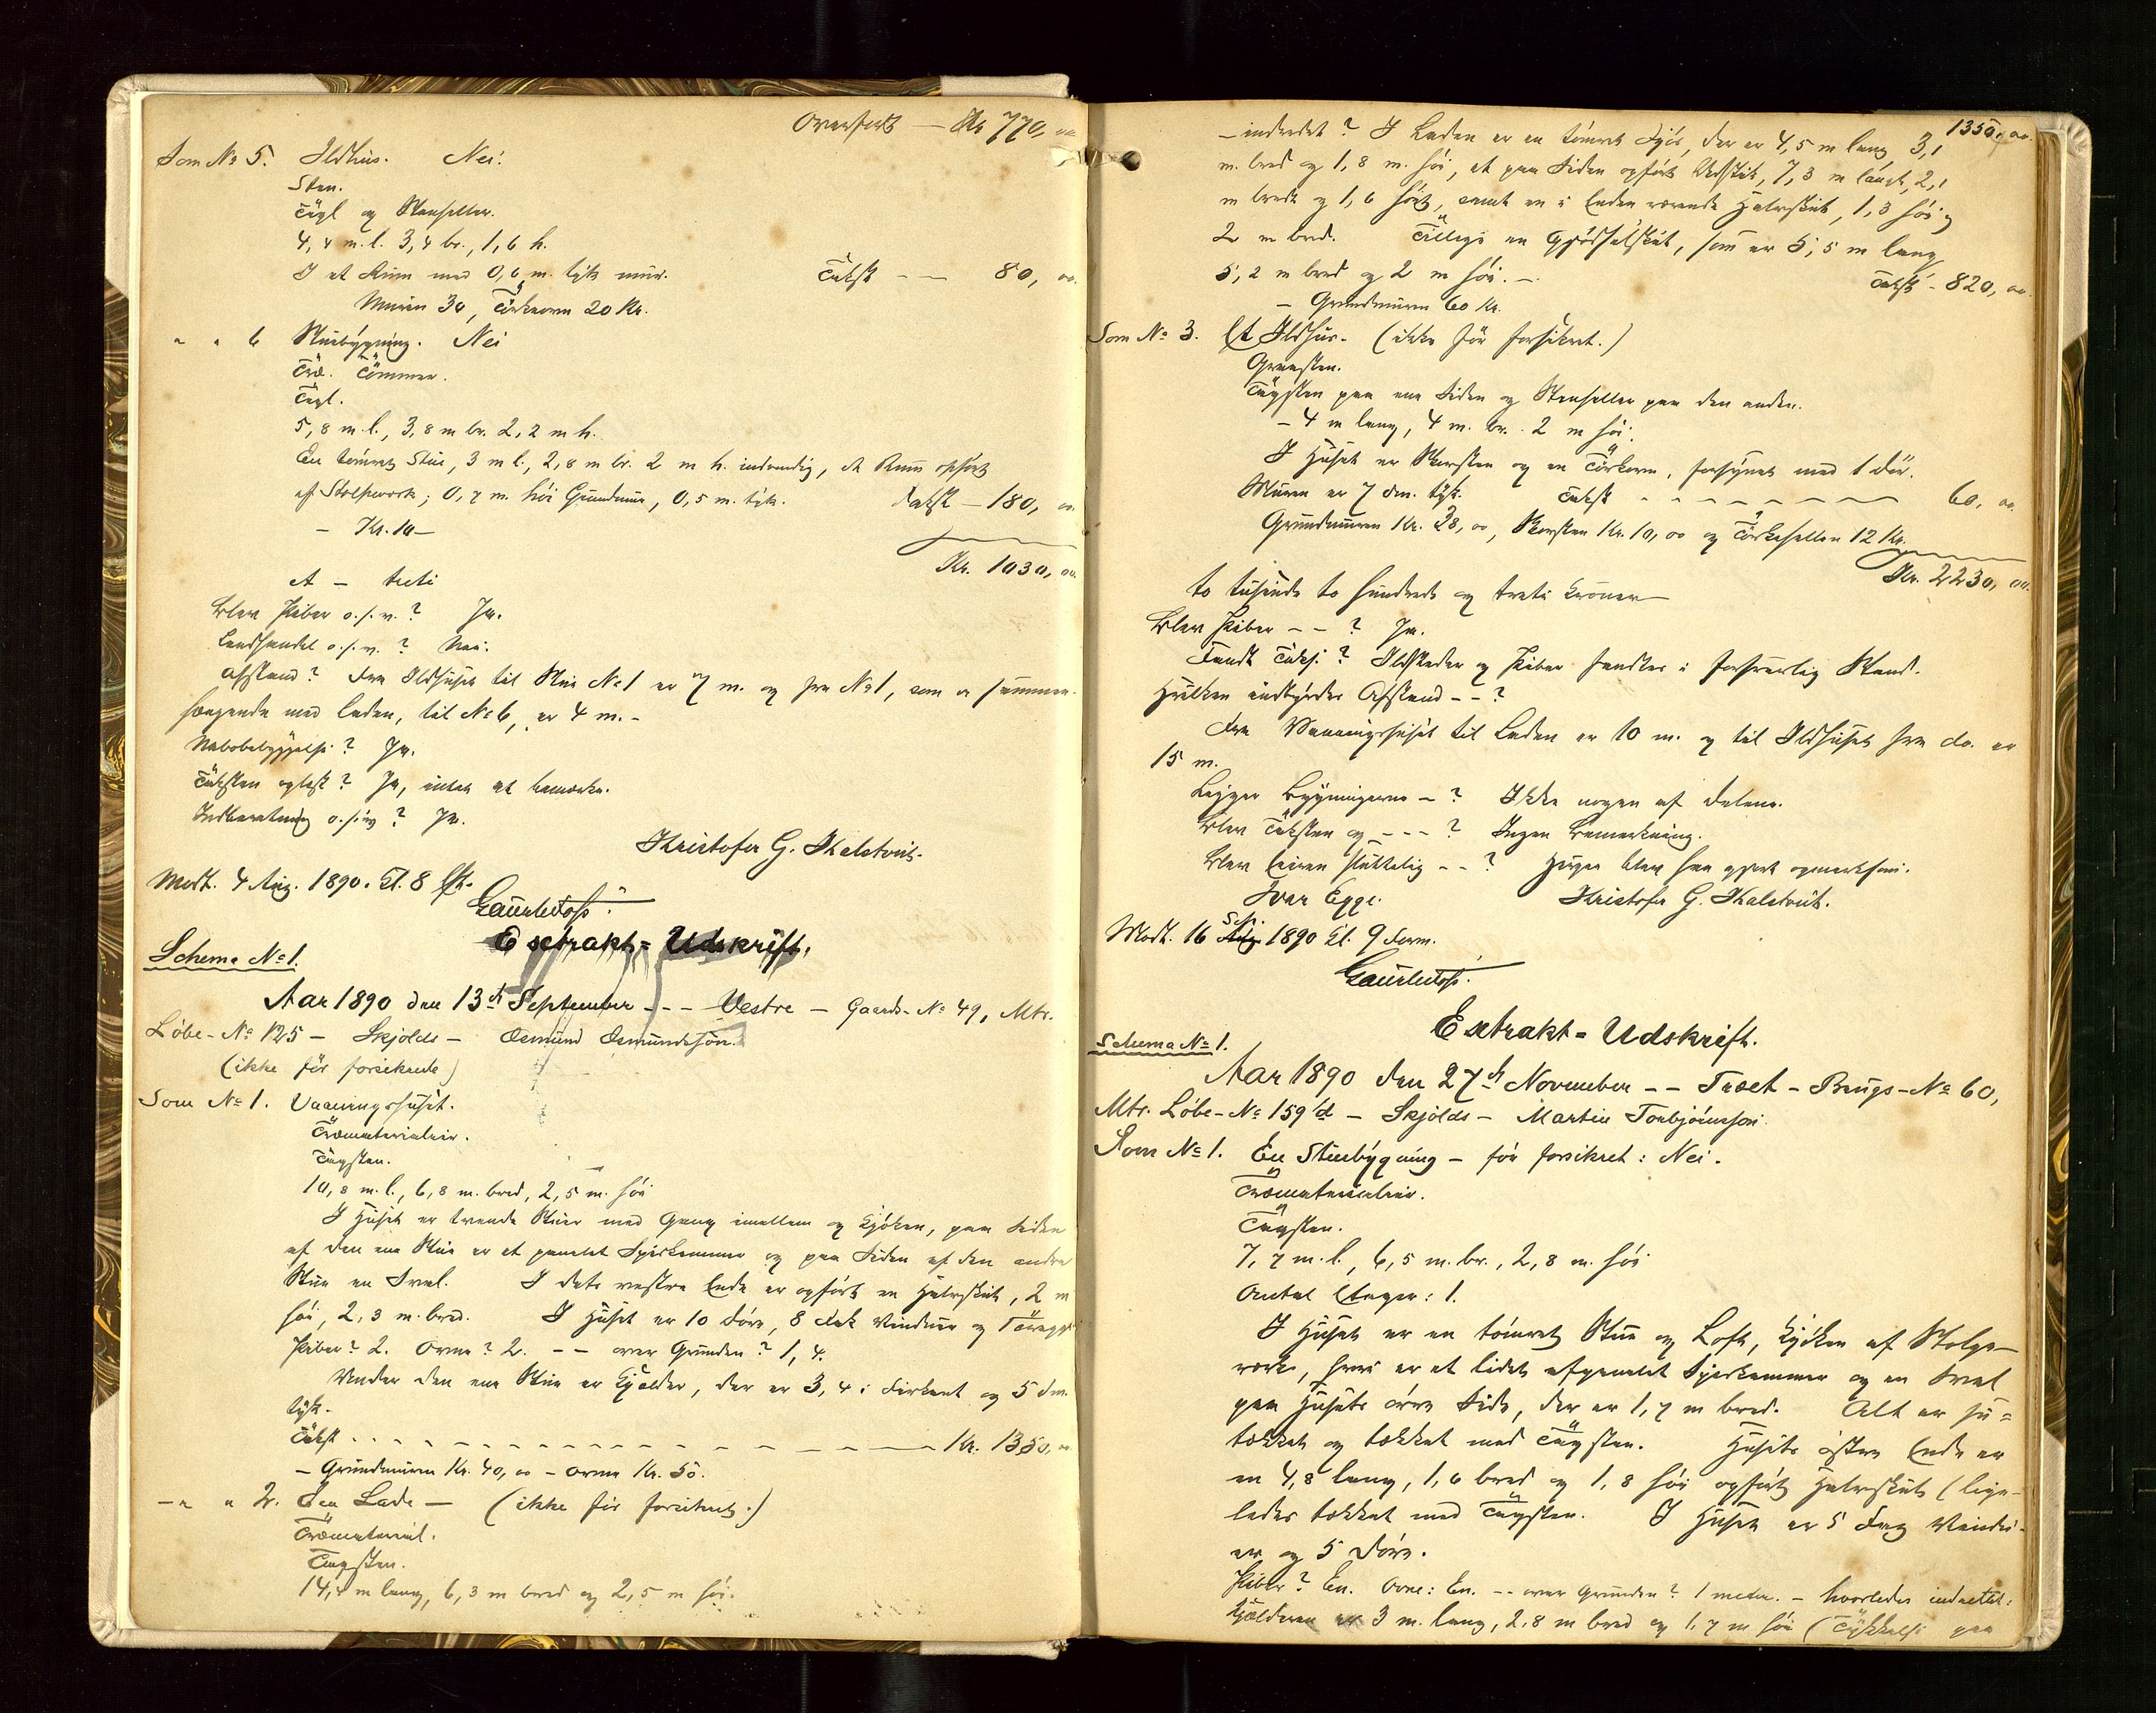 Overført — Kr 770, oo
Som No 5. Ildhus. Nei.
Sten.
Tagl og Stenheller.
4,4 m. l. 3,4 br., 1,6 h.
I et Rum med 0,6 m. tyk mur. Takst — — 80, oo.
Muren 30, Tørkeovn 20 Kr.
" " 6 Stuebygning. Nei
Træ. Tømmer.
Tagl.
5,8 m. l., 3,8 m br. 2,2 m h.
En tømret Stue, 3 m l., 2,8 m br. 2 m h. indvendig, et Rum opført
af Stolpeverk; 0,7 m. høi Grundmur, 0,5 m. tyk. Takst — 180, oo.
— Kr. 10 —
Kr. 1030, oo.
et — treti
Blev Piber o. s. v. ? Ja.
Landhandel o. s. v. ? Nei.
Afstand? Fra Ildhuset til Stue No 1 er 7 m. og fra No 1, som er sammen-
hængende med Laden, til No 6, er 4 m. -
Nabobebyggelse? Ja.
Taksten oplæst? Ja, intet at bemærke.
Indberetning o. s. v ? Ja.
Kristofer G. Kalstveit.
Modt. 4 Aug. 1890. Kl. 8 Em.
Extrakt = Udskrift.
Schema No 1.
Aar 1890 den 13de September - - - Vestre - Gaards-No 49, Mtr.
Løbe-No 125 - Skjolds - Osmund Osmundsson.
(ikke før forsikrede)
Som No 1. Vaaningshuset.
Træmaterialier.
Tagsten.
10,8 m. l., 6,8 m. bred, 2,5 m. høi
I Huset er tvende Stuer med Gang imellem og Kjøken, paa Siden
af den ene Stue er et panelet Spiskammer og paa Siden af den andre
Stue en Sval. I dets vestre Ende er opført en Halvskut, 2 m
høi, 2,3 m. bred. I Huset er 10 Døre, 8 Fak Vinduer og 1
Piber? 2. Ovne? 2. - - over Grunden? 1,4.
Under den ene Stue er Kjelder, der er 3,4 i Firkant og 5 dm.
tyk.
Takst - - - - - - - - - - Kr. 1350, oo
- Grundmuren Kr. 40, oo - Ovne Kr. 50.
—" " 2. En Lade — (ikke før forsikret.)
Træmaterial.
Tagsten.
14,4 m lang, 6,3 m bred og 2,5 m høi.
1350, oo.
- indredet? I Laden er en tømret Fjøs, der er 4,5 m lang 3,1
m. bred og 1,8 m. høi, et paa Siden opført Vedskut, 7,3 m langt, 2,1
m bredt og 1,6 høit, samt en i Enden værende Halvskut, 1,3 høi og
2 m bred. Tillige en Gjødselskut, som er 5,5 m lang
5,2 m bred og 2 m høi. - Takst - 820, oo.
- Grundmuren 60 Kr.
Som No 3. Et Ildhus. (ikke før forsikret.)
Graasten.
Tagsten paa ene Siden og Stenheller paa den anden.
- 4 m lang, 4 m. br. 2 m høi.
I Huset er Skorsten og en Tørkeovn, forsynet med 1 Dør.
Muren er 7 dm. tyk. Takst - - - - - - - 60, oo.
Grundmuren Kr. 38, oo, Skorsten Kr. 10, oo og Tørkehellen 12 Kr.
Kr. 2230, oo.
to tusinde to hundrede og treti Kroner —
Blev Piber - - ? Ja.
Fandt Taks. ? Ildsteder og Piber fandtes i forsvarlig Stand.
Hvilken indbyrdes Afstand - - ?
Fra Vaaningshuset til Laden er 10 m. og til Ildhuset fra do. er
15 m.
Ligger Bygningerne - ? Ikke nogen af delene.
Blev Taksten og - - - ? Ingen Bemærkning.
Blev Eieren sluttelig - - ? Herpaa blev han gjort opmerksom.
Ivar Egge. Kristofer G. Kalstveit.
Modt. 16 Sep. 1890 Kl. 9 Form.
Extrakt = Udskrift.
Schema No 1.
Aar 1890 den 27de November - - Træet - Brugs-No 60,
Mtr. Løbe-No 159 d - Skjolds - Martin Torbjørnsson.
Som No 1. En Stuebygning - før forsikret: Nei.
Træmaterialier.
Tagsten.
7,7 m. l., 6,5 m. br., 2,8 m. høi
Antal Etager: 1.
I Huset er en tømret Stue og Loft, Kjøken af Stolpe-
verk, hvori er et lidet afpanelet Spiskammer og en Sval
paa Husets øvre Side, der er 1,7 m bred. Alt er su-
tækket og tækket med Tagsten. Husets østre Ende er
en 4,8 lang, 1,6 bred og 1,8 høi opført Halvskut (lige-
ledes tækket med Tagsten. I Huset er 5 Fag Vindu-
er og 5 Døre.
Piber? En. Ovne: En. - - over Grunden? 1 meter. - hvorledes indrettet:
Kjelderen er 3 m. lang, 2,8 m bred og 1,7 m høi (Tykkelse paa